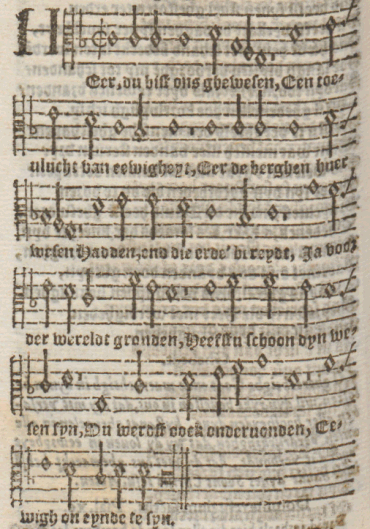 HEer, du bist ons ghewesen, Een toe-
vlucht van eewigheyt, Eer de berghen huer
wesen Hadden, end die erde' bereydt, Ja voor
der wereldt gronden, Heefstu schoon dyn we-
sen syn, Du werdst oock ondervonden, Ee-
wigh on eynde te syn.